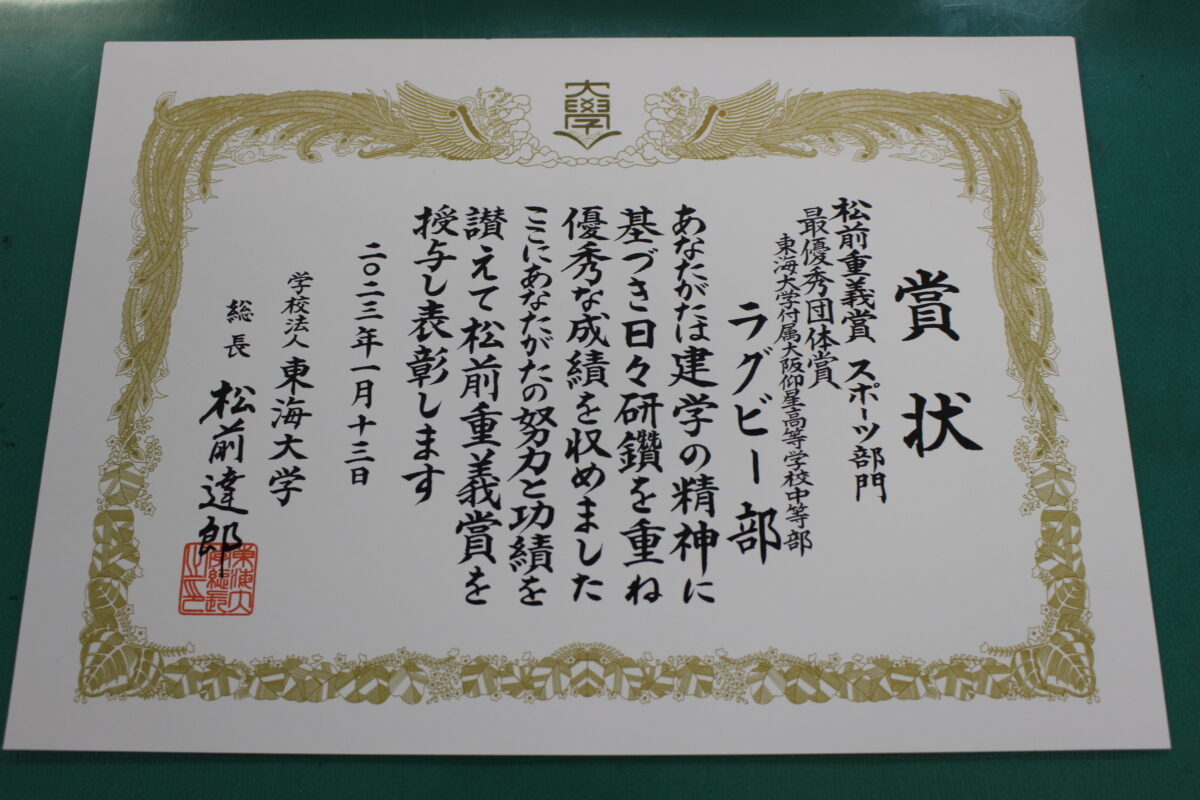 大學
賞状
松前重義賞 スポーツ部門
最優秀団体賞
東海大学付属大阪仰星高等学校中等部
ラグビー部
あなたがたは建学の精神に
基づき日々研鑽を重ね
優秀な成績を収めました
ここにあなたがたの努力と功績を
讃えて松前重義賞を
授与し表彰します
二〇二三年一月十三日
学校法人 東海大学
総長 松前達郎